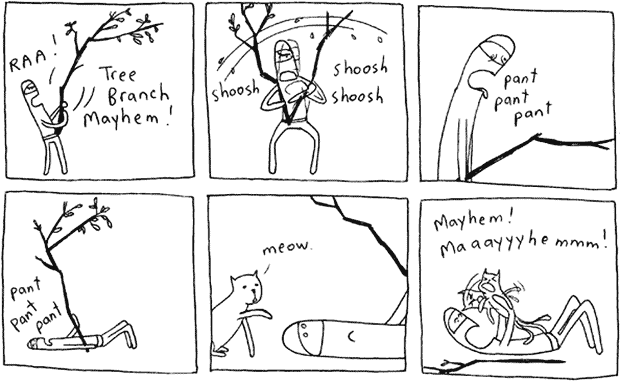 RAA!
Tree
Branch
Mayhem!
shoosh
shoosh
shoosh
pant
pant
pant
pant
pant
pant
meow.
Mayhem!
Maaayyyhemmm!